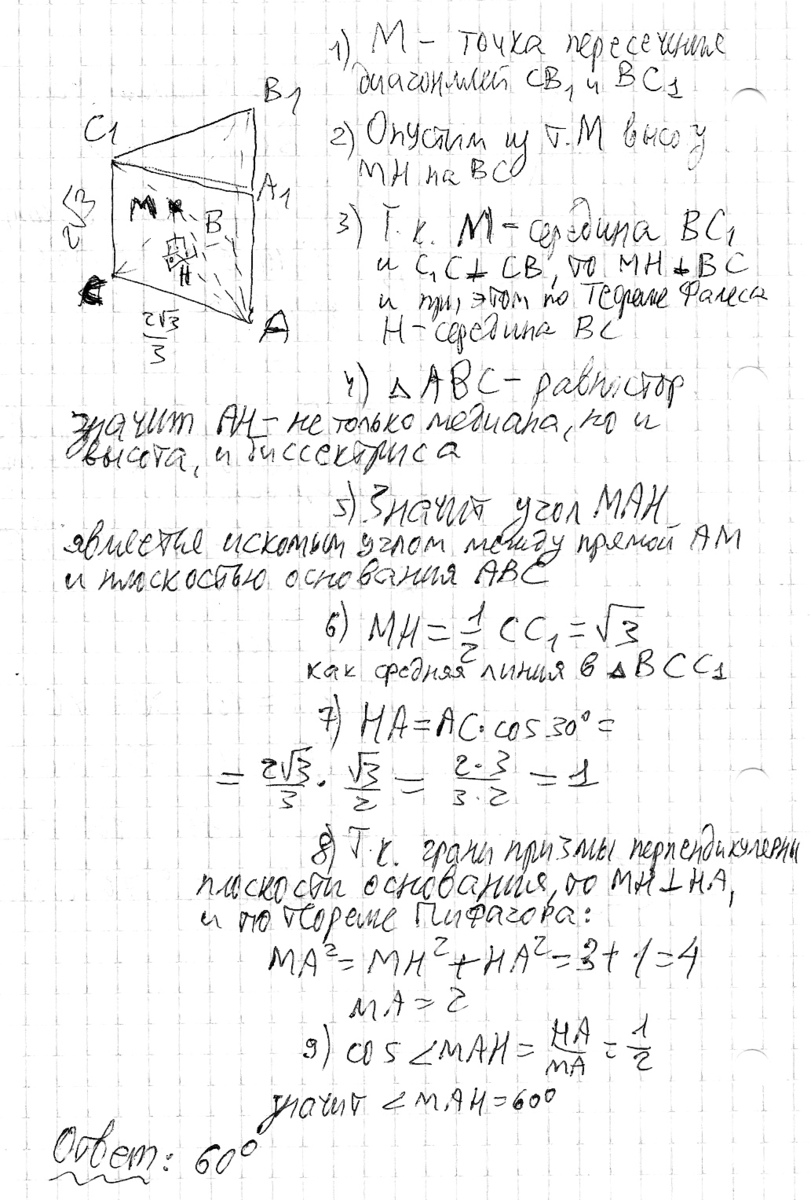 1) М – точка пересечения
диагоналей CB₁ и BC₁
B₁
C₁
2) Опустим из т. М высоту
MH на BC
A₁
2√3
M
B
3) Т.к. М – середина BC₁
и C₁C ⊥ CB, то MH ⊥ BC
H
и при этом по Теореме Фалеса
C
2√3/3
A
H – середина BC
4) △ ABC – равностор
значит AH – не только медиана, но и
высота, и биссектриса
5) Значит угол MAH
является искомым углом между прямой AM
и плоскостью основания ABC
6) MH = 1/2 CC₁ = √3
как средняя линия в △ BCC₁
7) HA = AC · cos 30° =
= 2√3/3 · √3/2 = 2·3/3·2 = 1
8) Т.к. грани призмы перпендикулярны
плоскости основания, то MH ⊥ HA,
и по теореме Пифагора:
MA² = MH² + HA² = 3 + 1 = 4
MA = 2
9) cos ∠MAH = HA/MA = 1/2
значит ∠MAH = 60°
Ответ: 60°